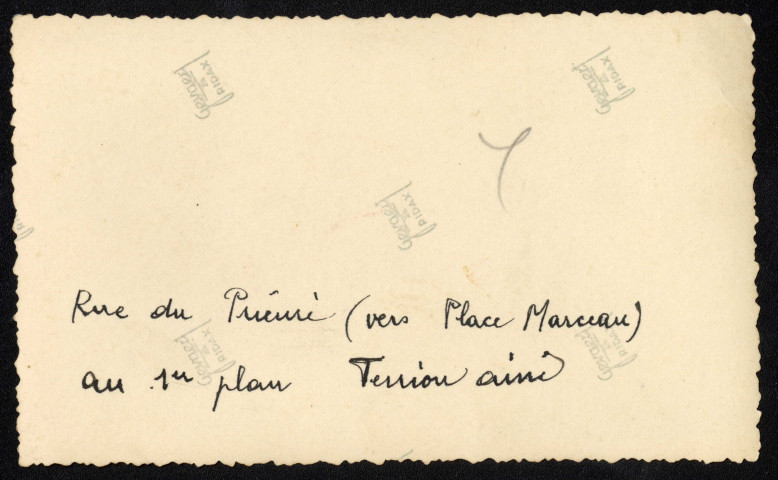 Gevaert
RIDAX
Gevaert
RIDAX
Gevaert
RIDAX
Rue du Prieuré (vers Place Marceau)
Gevaert
RIDAX
Gevaert
RIDAX
au 1er plan aîné